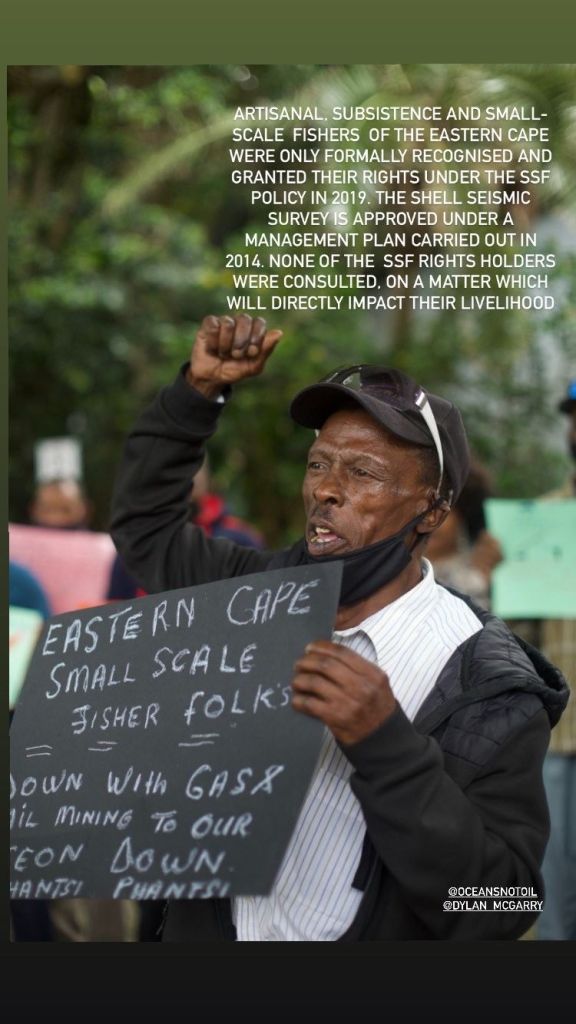 ARTISANAL, SUBSISTENCE AND SMALL-
SCALE FISHERS OF THE EASTERN CAPE
WERE ONLY FORMALLY RECOGNISED AND
GRANTED THEIR RIGHTS UNDER THE SSF
POLICY IN 2019. THE SHELL SEISMIC
SURVEY IS APPROVED UNDER A
MANAGEMENT PLAN CARRIED OUT IN
2014. NONE OF THE SSF RIGHTS HOLDERS
WERE CONSULTED, ON A MATTER WHICH
WILL DIRECTLY IMPACT THEIR LIVELIHOOD
EASTERN CAPE
SMALL SCALE
FISHER FOLK'S
DOWN WITH GAS &
MINING TO OUR
DOWN.
PHANTSI
@OCEANSNOTOIL
@DYLAN_MCGARRY